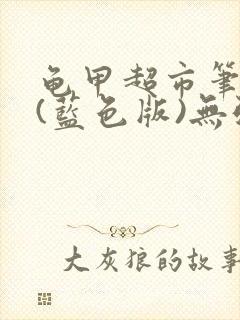 龟甲超市筆
(藍色版)無
大灰狼的故事